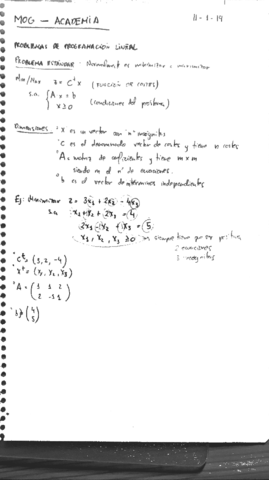 MOG - ACADEMIA
11-1-19
PROBLEMAS DE PROGRAMACIÓN LINEAL
PROBLEMA ESTÁNDAR: Normalmente es minimizar o maximizar
Min/Max z = Cᵗ x (función de costes)
s.a. { A x = b
x ≥ 0 (condiciones del problema)
Dimensiones: ° X es un vector con "n" incógnitas
° C es el denominado vector de costes y tiene n costes
° A matriz de coeficientes y tiene m x n
siendo m el nº de ecuaciones.
° b es el vector de términos independientes
Ej: Minimizar z = 3x₁ + 2x₂ - 4x₃
s.a. x₁ + x₂ + 2x₃ = 4
2x₁ - x₂ + x₃ = 5
x₁, x₂, x₃ ≥ 0 siempre tiene que ser positiva
2 ecuaciones
3 incógnitas
° Cᵗ = (3, 2, -4)
° Xᵗ = (x₁, x₂, x₃)
° A = (1 1 2
2 -1 1)
° b = (4
5)